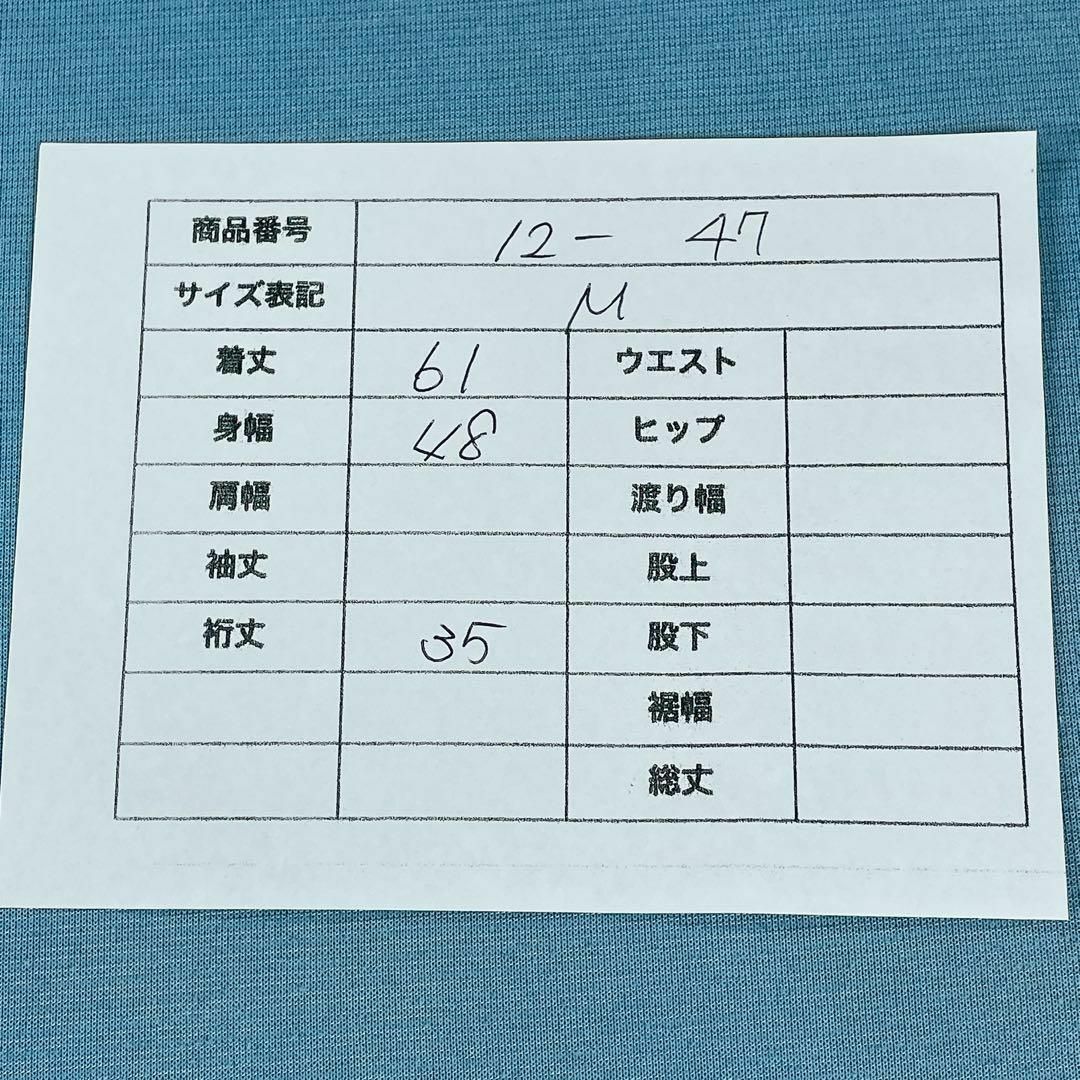 商品番号 12- 47
サイズ表記 M
着丈 61 ウエスト
身幅 48 ヒップ
肩幅 渡り幅
袖丈 股上
裄丈 35 股下
裾幅
総丈